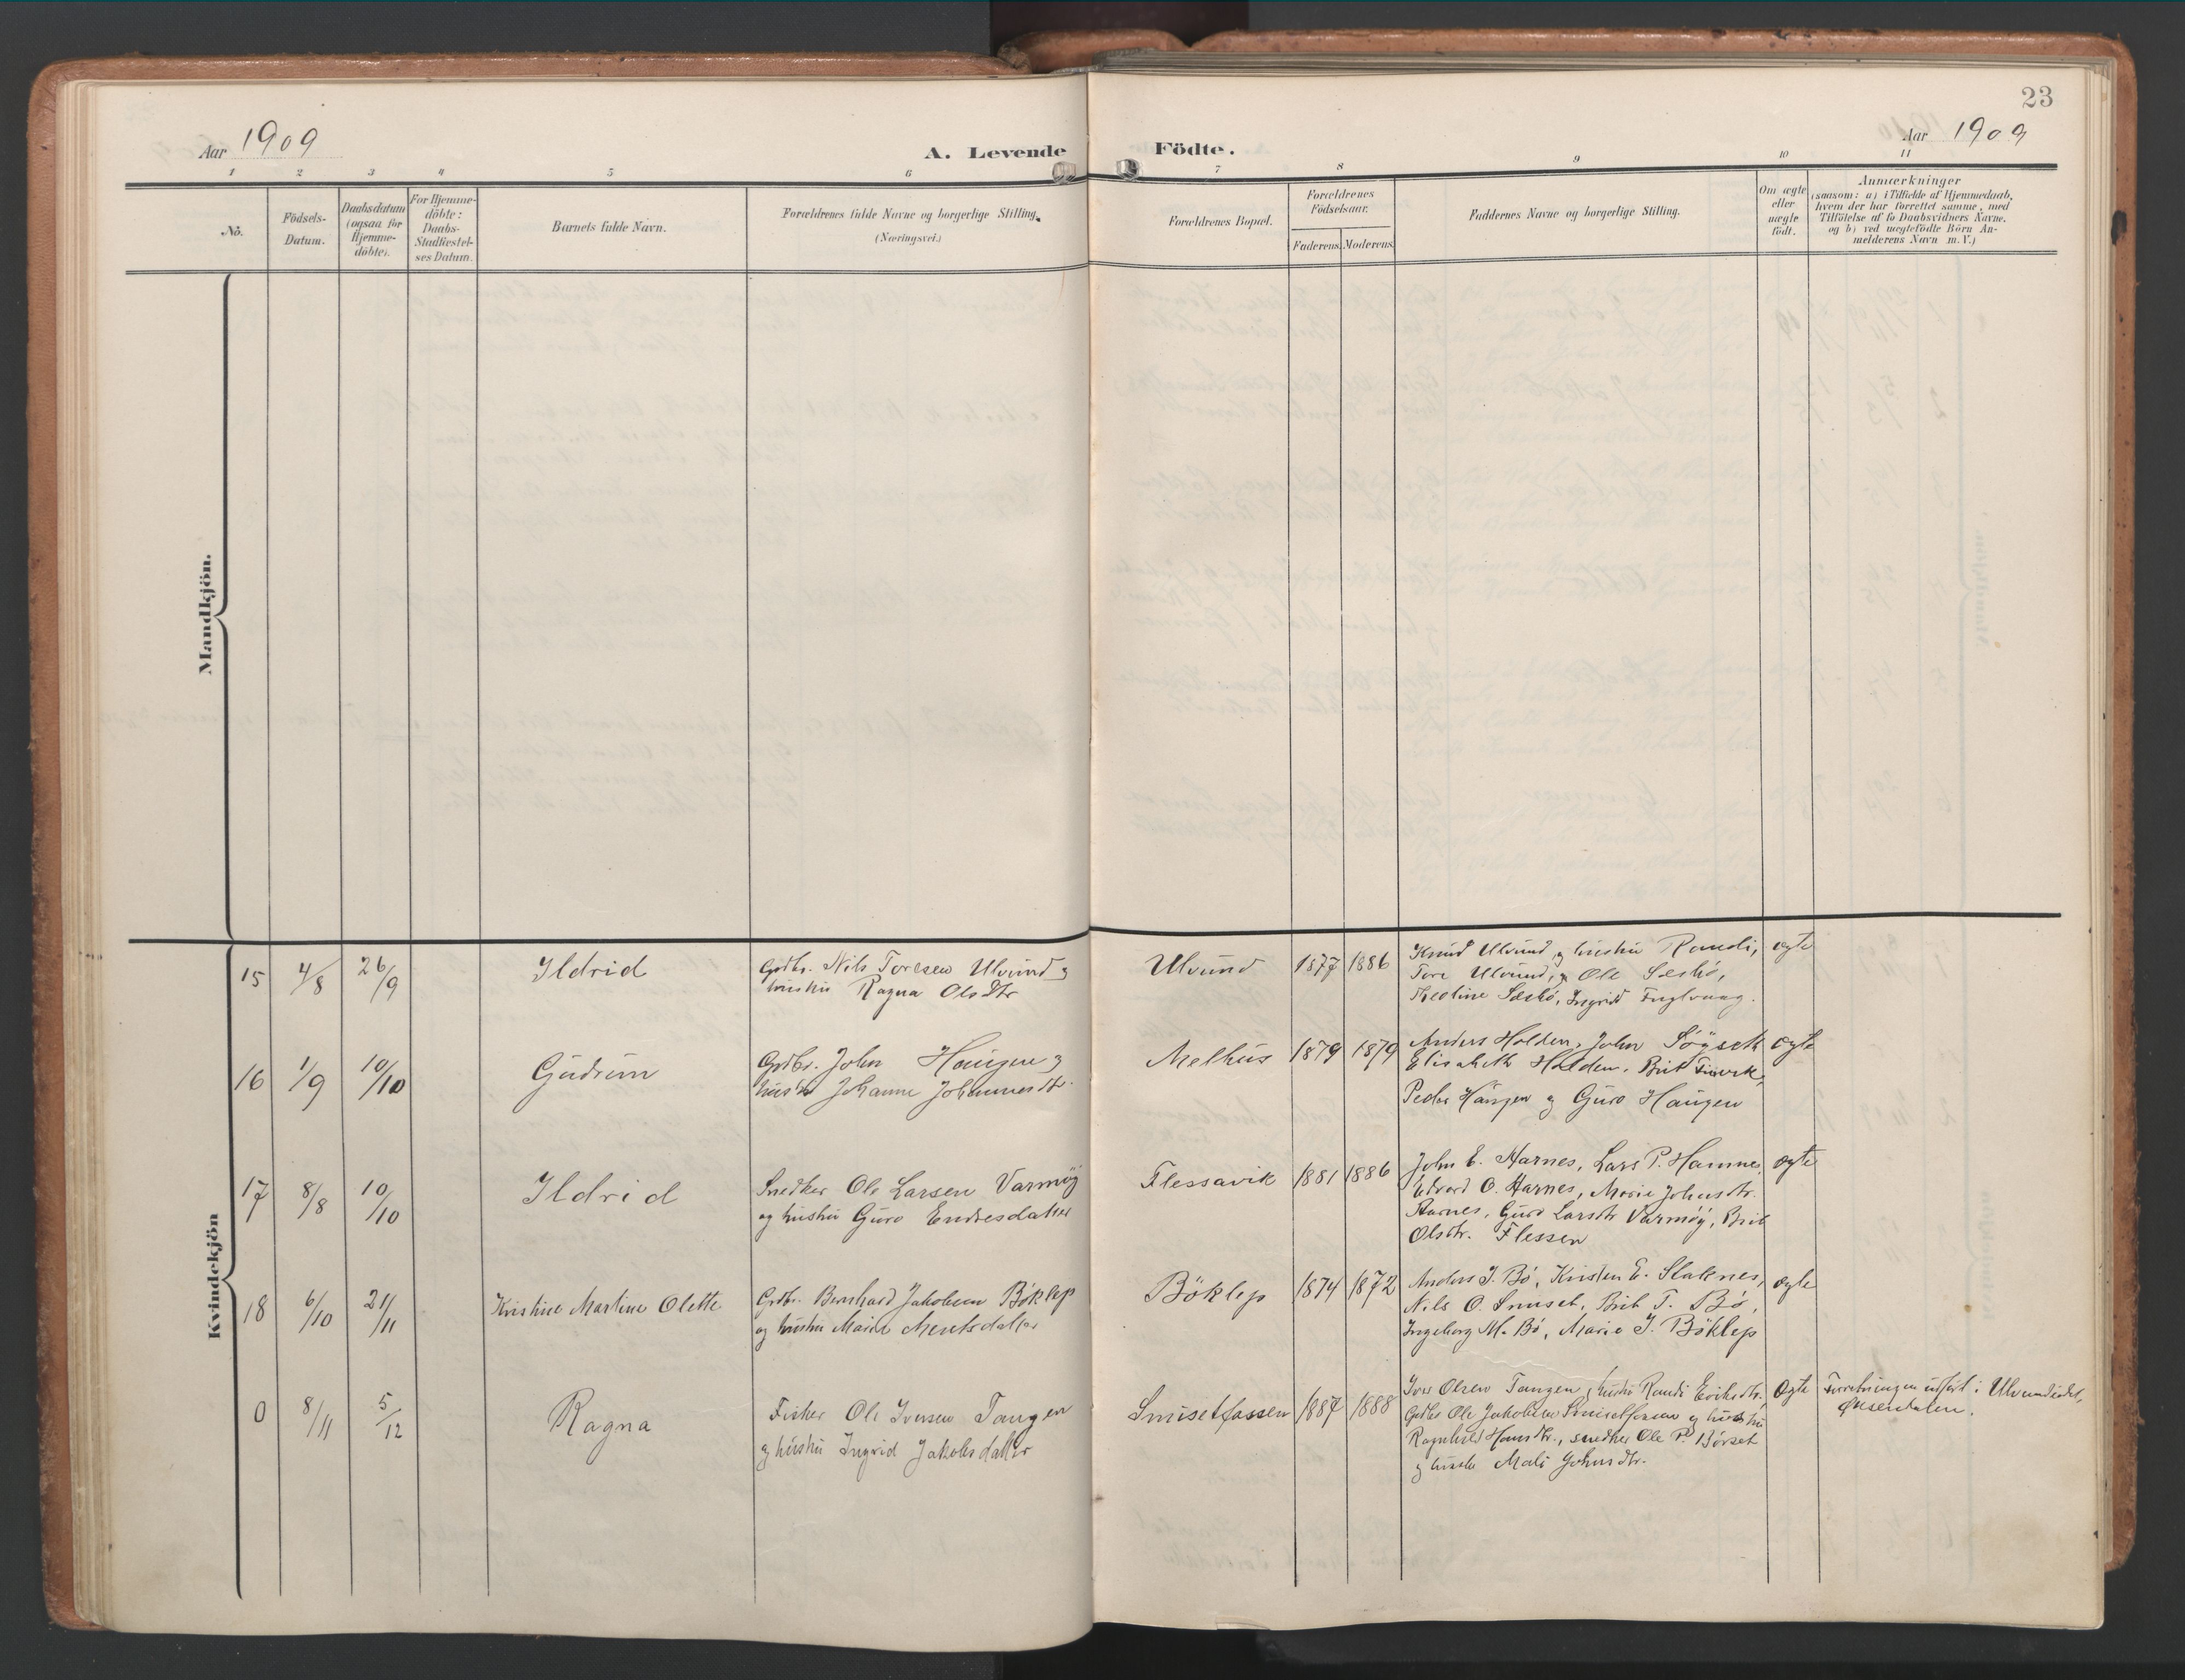 23
Aar 1909
A. Levende Födte.
Aar 1909
1 2 3 4 5 6 7 8 9 10 11
No.
Födsels-
Datum.
Daabsdatum
(ogsaa for
Hjemme-
döbte).
For Hjemme-
döbte:
Daabs-
Stadfæstel-
ses Datum.
Barnets fulde Navn.
Forældrenes fulde Navne og borgerlige Stilling.
(Næringsvei.)
Forældrenes Bopæl.
Forældrenes
Födselsaar.
Faderens. Moderens.
Faddernes Navne og borgerlige Stilling.
Om ægte
eller
uægte
födt.
Anmærkninger
(saasom: a) i Tilfælde af Hjemmedaab,
hvem der har forrettet samme, med
Tilföielse af to Daabsvidners Navne,
og b) ved uægtefödte Börn An-
melderens Navn m. V.)
Mandkjön.
Kvindekjön
15 4/8 26/9 Ildrid
Grdbr. Nils Toresen Ulvund og
hustru Ragna Olsdtr
Ulvund 1877 1886
Knud Ulvund og hustru Randi,
Tore Ulvund, og Ole Seskö,
Theoline Seskö, Ingrid Fuglvaag.
ægte
16 1/9 10/10 Gudrun
Grdbr. John Haugen og
hustr Johanne Johannesdtr.
Melhus 1879 1879
Anders Holden, John Sögseth
Elisabeth Holden, Brit
Peder Haugen og Guro Haugen
ægte
17 8/8 10/10 Ildrid
Snedker Ole Larsen Varmöy
og hustru Guro Endresdatter
Flessavik 1881 1886
John E. Harnes, Lars P. Hamnes,
Edvard O. Harnes, Marie Johnsdtr.
Harnes, Guro Larsdtr Varmöy, Brit
Olsdtr. Flessen
ægte
18 6/10 21/11 Kristine Martine Olette
Grdbr. Bernhard Jakobsen Böklep
og hustru Marie Mentsdatter
Böklep 1874 1872
Anders J. Bö, Kristen E. Slaknes,
Nils O. Smiset, Brit T. Bö,
Ingeborg M. Bö, Marie J. Böklep
ægte
0 8/11 5/12 Ragna
Fisker Ole Iversen Tangen
og hustru Ingrid Jakobsdatter
Smisetfossen 1887 1888
Iver Olsen Tangen, hustru Randi Eriksdtr,
Grdbr Ole Jakobsen Smisetfossen og hustru
Ragnhild Hansdtr., snedker Ole P. Börset
og hustru Mali Johnsdtr.
ægte
Forretningen utfört i Ulvundeidet,
Öksendalen.